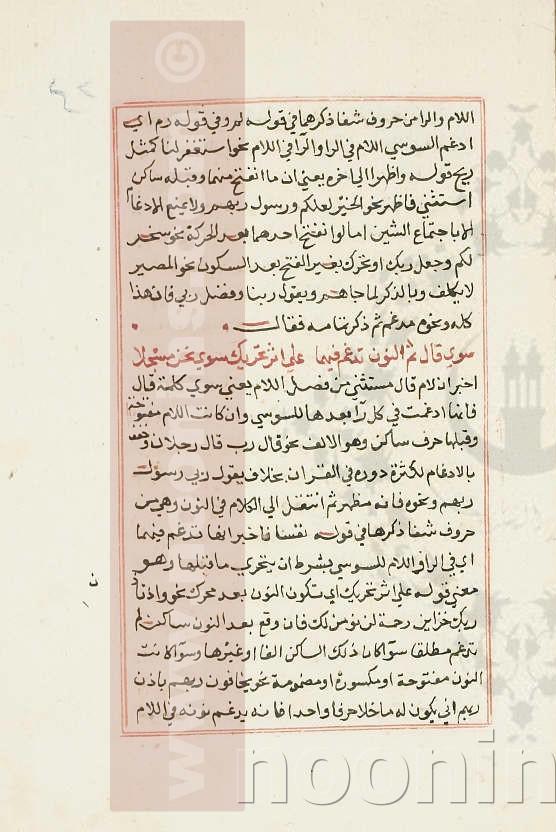 اللام والرا من حروف شفا ذكرها في قوله لم وفي قوله رم اي
ادغم السوسي اللام في الرا والرا في اللام نحو استغفر لنا كمثل
ريح قوله واظهرا الي اخره يعني ان ما انفتح منهما وقبله ساكن
استثني فاظهر نحو الخير لعلكم ورسول ربهم ولا يمنع الادغام
الا باجتماع الشيئين اما لو انفتح احدهما بعد الحركة نحو سخر
لكم وجعل ربك او تحرك بغير الفتح بعد السكون نحو المصير
لا يكلف وبالذكر لما جاهم ويقول ربنا وفضل ربي فان هذا
كله ونحوه مدغم ثم ذكر تمامه فقال
سوي قال ثم النون تدغم فيهما علي اثر تحريك سوي نحن مسجلا
اخبر ان لام قال مستثني من فصل اللام يعني سوي كلمة قال
فانها ادغمت في كل را بعدها للسوسي وان كانت اللام مفتوحة
وقبلها حرف ساكن وهو الالف نحو قال رب قال رجلان وخفف
بالادغام لكثرة دوره في القران بخلاف يقول ربي رسول
ربهم ونحوه فانه مظهر ثم انتقل الي الكلام في النون وهي من
حروف شفا ذكرها في قوله نفسا فاخبر انها تدغم فيهما
اي في الرا واللام للسوسي بشرط ان يتحرك ما قبلها وهو
معني قوله علي اثر تحريك اي تكون النون بعد محرك نحو واذ تأذن
ربك خزاين رحمة لن نومن لك فان وقع بعد النون ساكن لم
تدغم مطلقا سوآ كان ذلك الساكن الفا او غيرها وسوآ كانت
النون مفتوحة او مكسورة او مضمومة نحو يخافون ربهم باذن
ربهم اني يكون له ما خلا حرفا واحدا فانه يدغم نونه في اللام
noonin